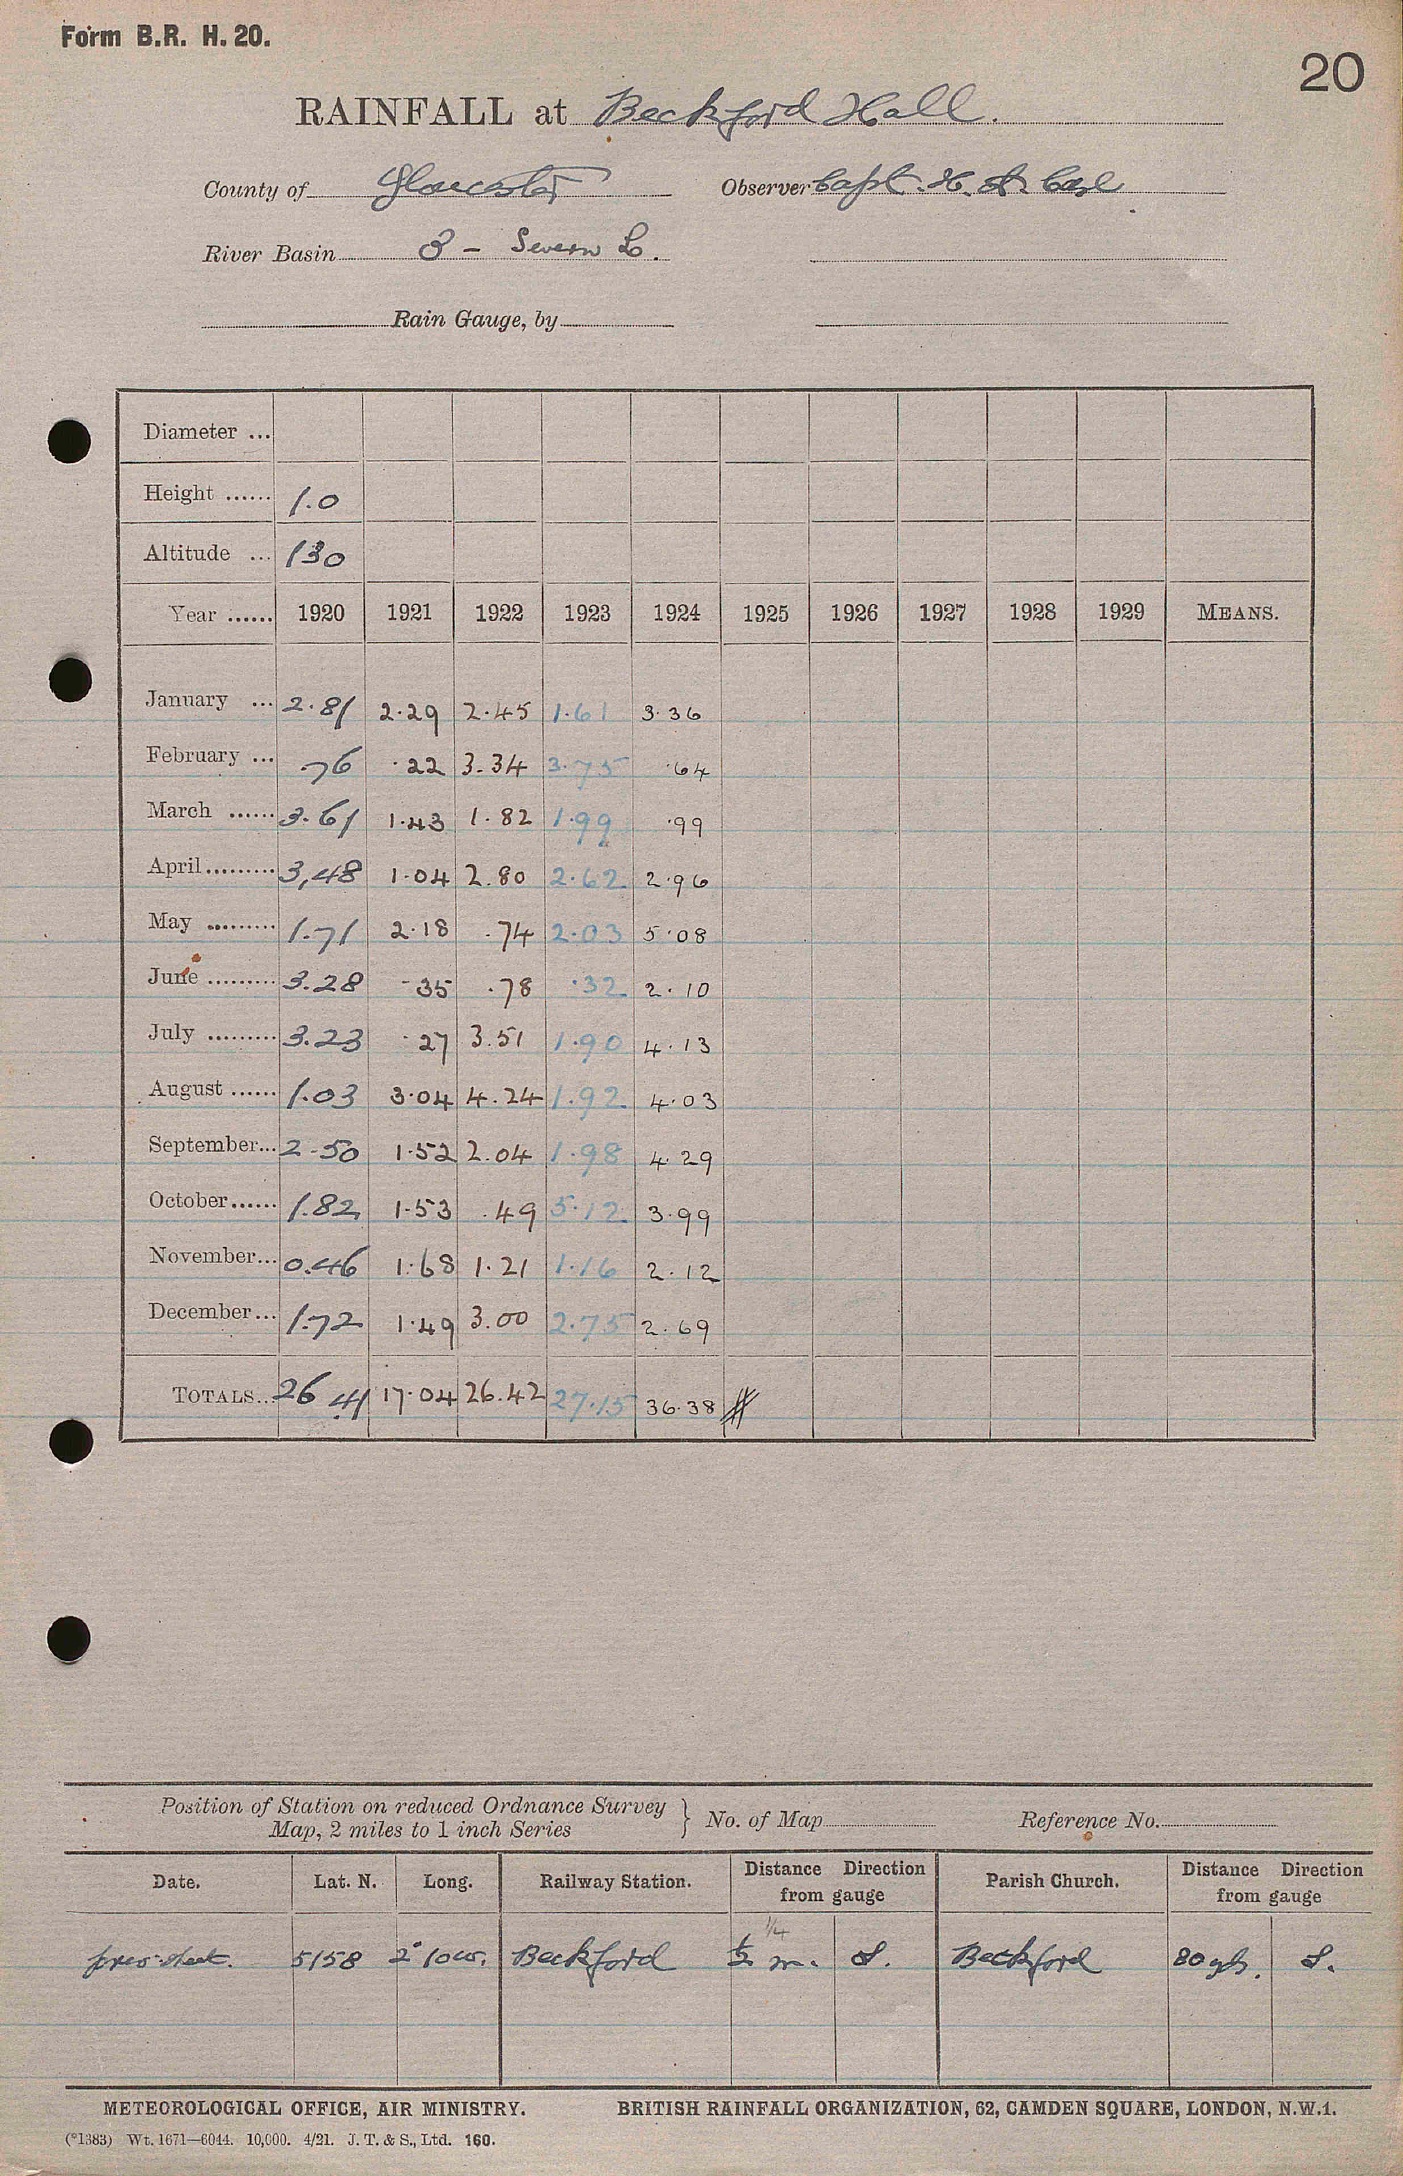 Form B.R. H. 20.
20
RAINFALL at Beckford Hall.
County of Gloucester Observer Capt. H. A.
River Basin 8 - Severn L.
Rain Gauge, by
Diameter ...
Height ...... 1.0
Altitude ... 130
Year ...... 1920 1921 1922 1923 1924 1925 1926 1927 1928 1929 MEANS.
January ... 2.81 2.29 2.45 1.61 3.36
February ... .76 .22 3.34 3.75 .64
March ...... 3.61 1.43 1.82 1.99 .99
April ......... 3,48 1.04 2.80 2.62 2.96
May ......... 1.71 2.18 .74 2.03 5.08
June ......... 3.28 .35 .78 .32 2.10
July ......... 3.23 .27 3.51 1.90 4.13
August ...... 1.03 3.04 4.24 1.92 4.03
September... 2.50 1.52 2.04 1.98 4.29
October...... 1.82 1.53 .49 5.12 3.99
November... 0.46 1.68 1.21 1.16 2.12
December... 1.72 1.49 3.00 2.75 2.69
TOTALS... 26.41 17.04 26.42 27.15 36.38
Position of Station on reduced Ordnance Survey Map, 2 miles to 1 inch Series } No. of Map Reference No.
Date. Lat. N. Long. Railway Station. Distance Direction from gauge Parish Church. Distance Direction from gauge
1/4
prev. sheet. 5158 2° 10w. Beckford ½ m. S. Beckford 80 yds. S.
METEOROLOGICAL OFFICE, AIR MINISTRY. BRITISH RAINFALL ORGANIZATION, 62, CAMDEN SQUARE, LONDON, N.W.1.
(*1383) Wt. 1671—6044. 10,000. 4/21. J. T. & S., Ltd. 160.